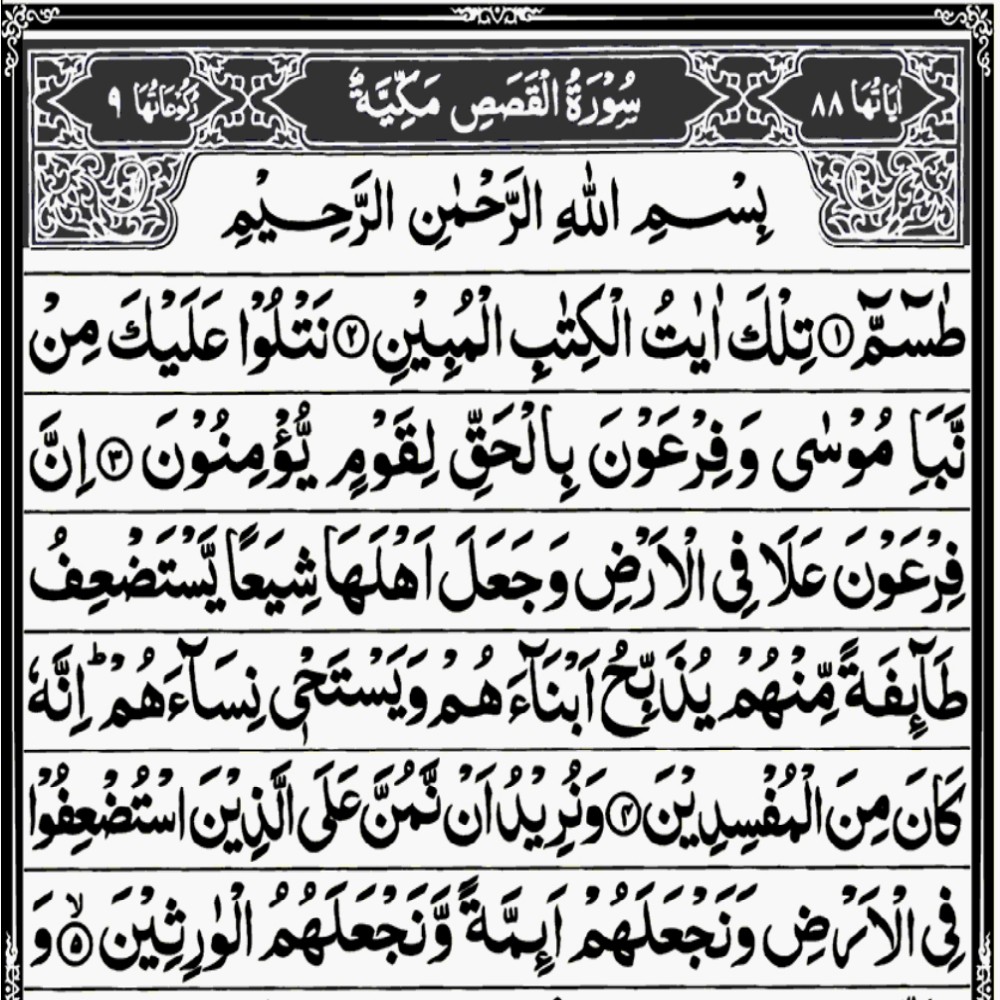 اٰيَاتُهَا ٨٨ سُوْرَةُ الْقَصَصِ مَكِّيَّةٌ رُكُوْعَاتُهَا ٩
بِسْمِ اللهِ الرَّحْمٰنِ الرَّحِيْمِ
طٰسٓمّٓ ﴿١﴾ تِلْكَ اٰيٰتُ الْكِتٰبِ الْمُبِيْنِ ﴿٢﴾ نَتْلُوْا عَلَيْكَ مِنْ
نَّبَاِ مُوْسٰى وَفِرْعَوْنَ بِالْحَقِّ لِقَوْمٍ يُّؤْمِنُوْنَ ﴿٣﴾ اِنَّ
فِرْعَوْنَ عَلَا فِى الْاَرْضِ وَجَعَلَ اَهْلَهَا شِيَعًا يَّسْتَضْعِفُ
طَآئِفَةً مِّنْهُمْ يُذَبِّحُ اَبْنَآءَهُمْ وَيَسْتَحْىٖ نِسَآءَهُمْ ؕ اِنَّهٗ
كَانَ مِنَ الْمُفْسِدِيْنَ ﴿٤﴾ وَنُرِيْدُ اَنْ نَّمُنَّ عَلَى الَّذِيْنَ اسْتُضْعِفُوْا
فِى الْاَرْضِ وَنَجْعَلَهُمْ اَئِمَّةً وَّنَجْعَلَهُمُ الْوٰرِثِيْنَ ۙ﴿٥﴾ وَ